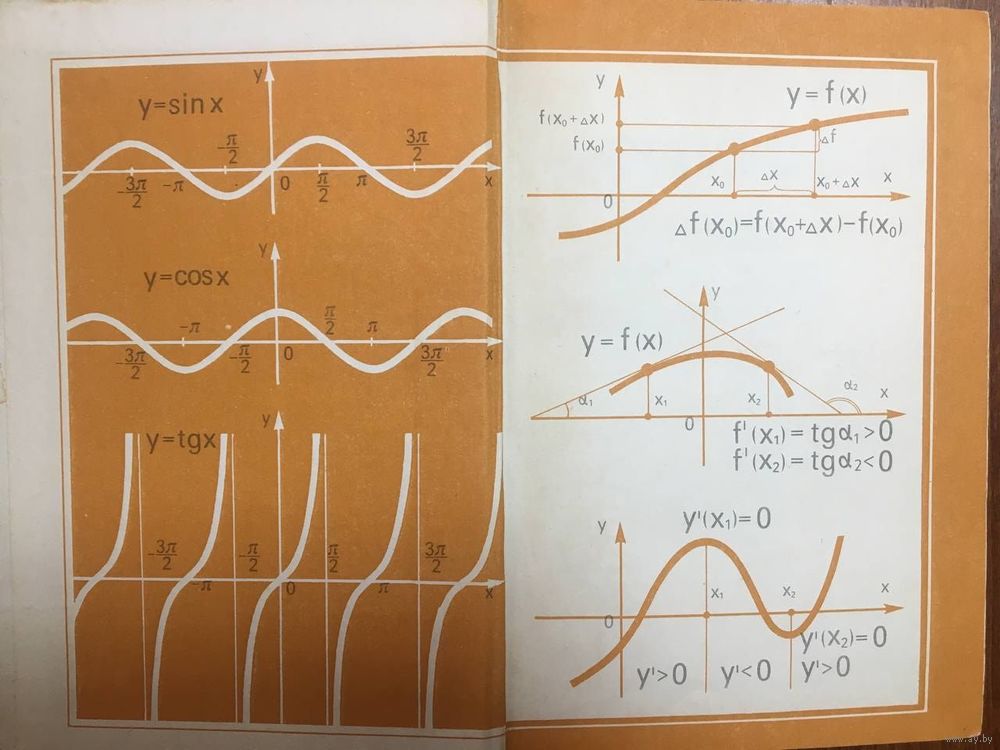 y
y=sinx
-3π/2
-π
-π/2
0
π/2
π
3π/2
x
y
y=cosx
-3π/2
-π
-π/2
0
π/2
π
3π/2
x
y
y=tgx
-3π/2
-π
-π/2
0
π/2
π
3π/2
x
y
y=f(x)
f(x₀+Δx)
f(x₀)
Δf
x₀
Δx
x₀+Δx
x
0
Δf(x₀)=f(x₀+Δx)-f(x₀)
y
y=f(x)
α₁
x₁
x₂
α₂
x
0
f'(x₁)=tgα₁>0
f'(x₂)=tgα₂<0
y
y'(x₁)=0
x₁
x₂
x
0
y'(x₂)=0
y'>0
y'<0
y'>0
www.ay.by